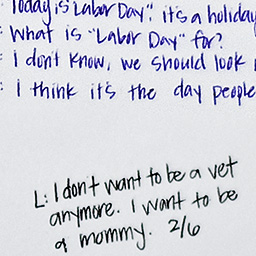 : Today is "Labor Day". it's a holiday
: What is "Labor Day" for?
: I don't know, we should look
: I think it's the day people
L: I don't want to be a vet
anymore. I want to be
a mommy. 2/6